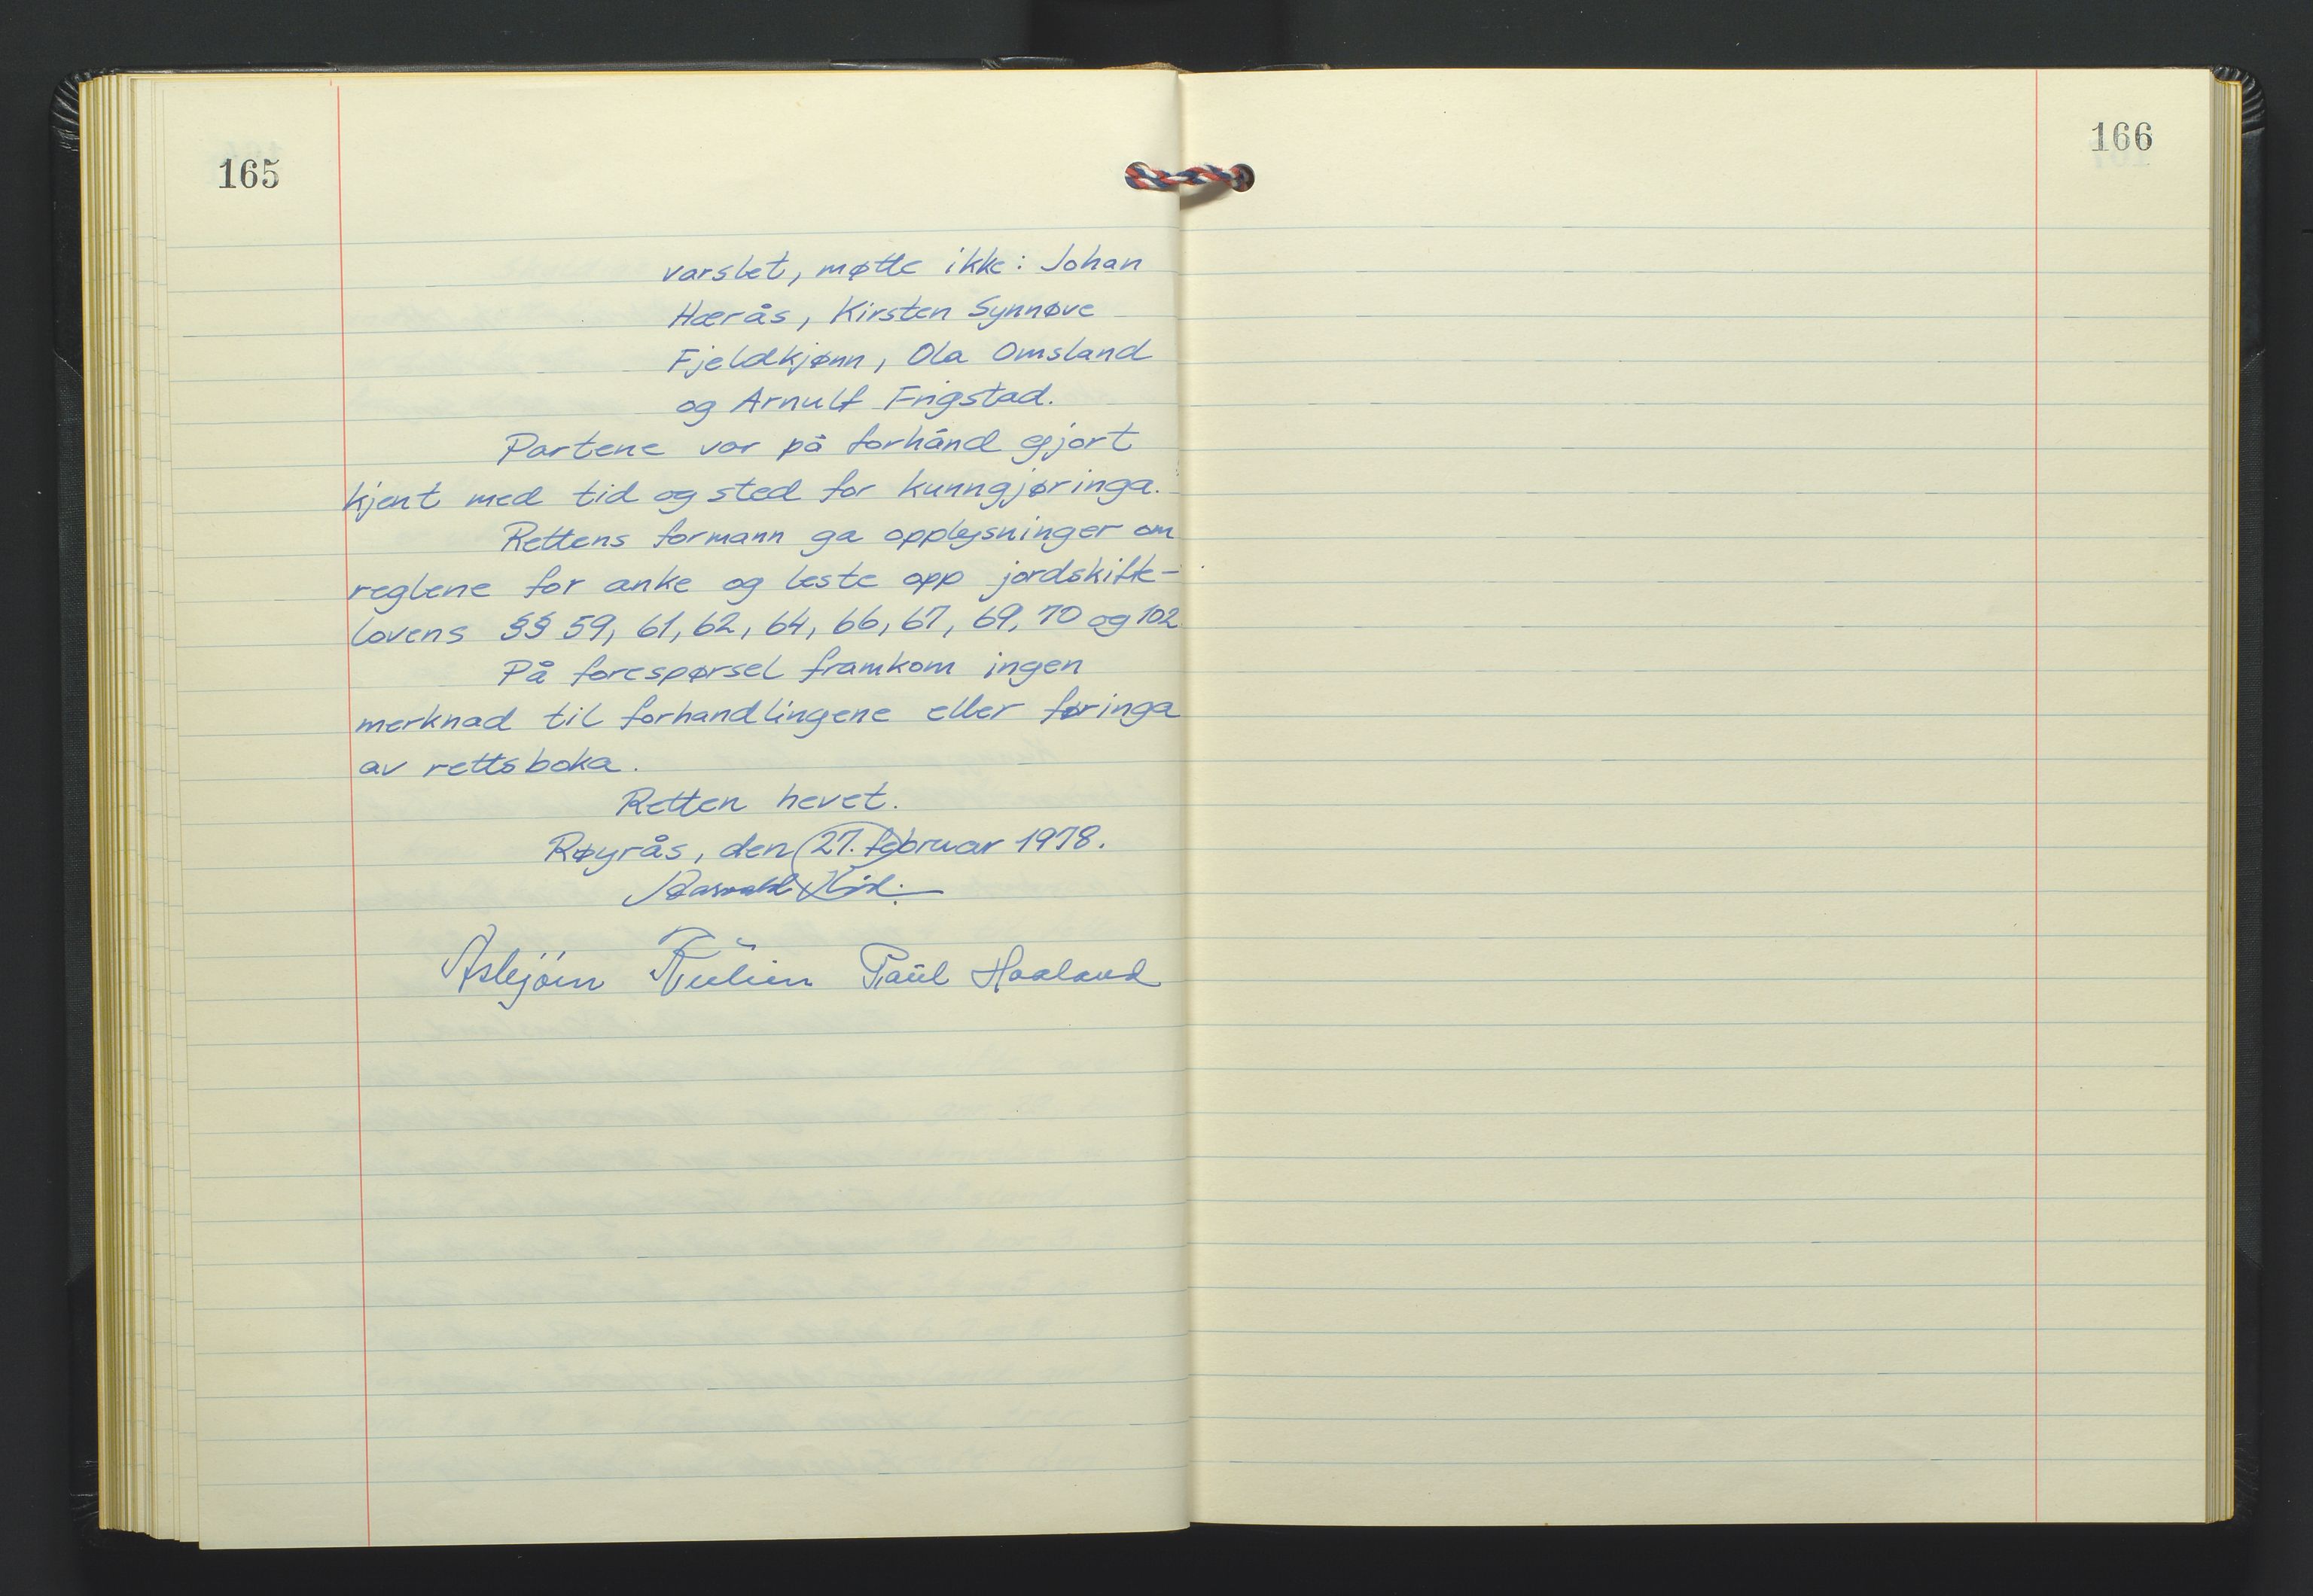 165
varslet, møtte ikke: Johan
Hærås, Kirsten Synnøve
Fjeldkjønn, Ola Omsland
og Arnulf Frigstad.
Partene var på forhånd gjort
kjent med tid og sted for kunngjøringa.
Rettens formann ga opplysninger om
reglene for anke og leste opp jordskifte-
lovens §§ 59, 61, 62, 64, 66, 67, 69, 70 og 102
På forespørsel framkom ingen
merknad til forhandlingene eller føringa
av rettsboka.
Retten hevet.
Røyrås, den 27. februar 1978.
Paul Haaland
166